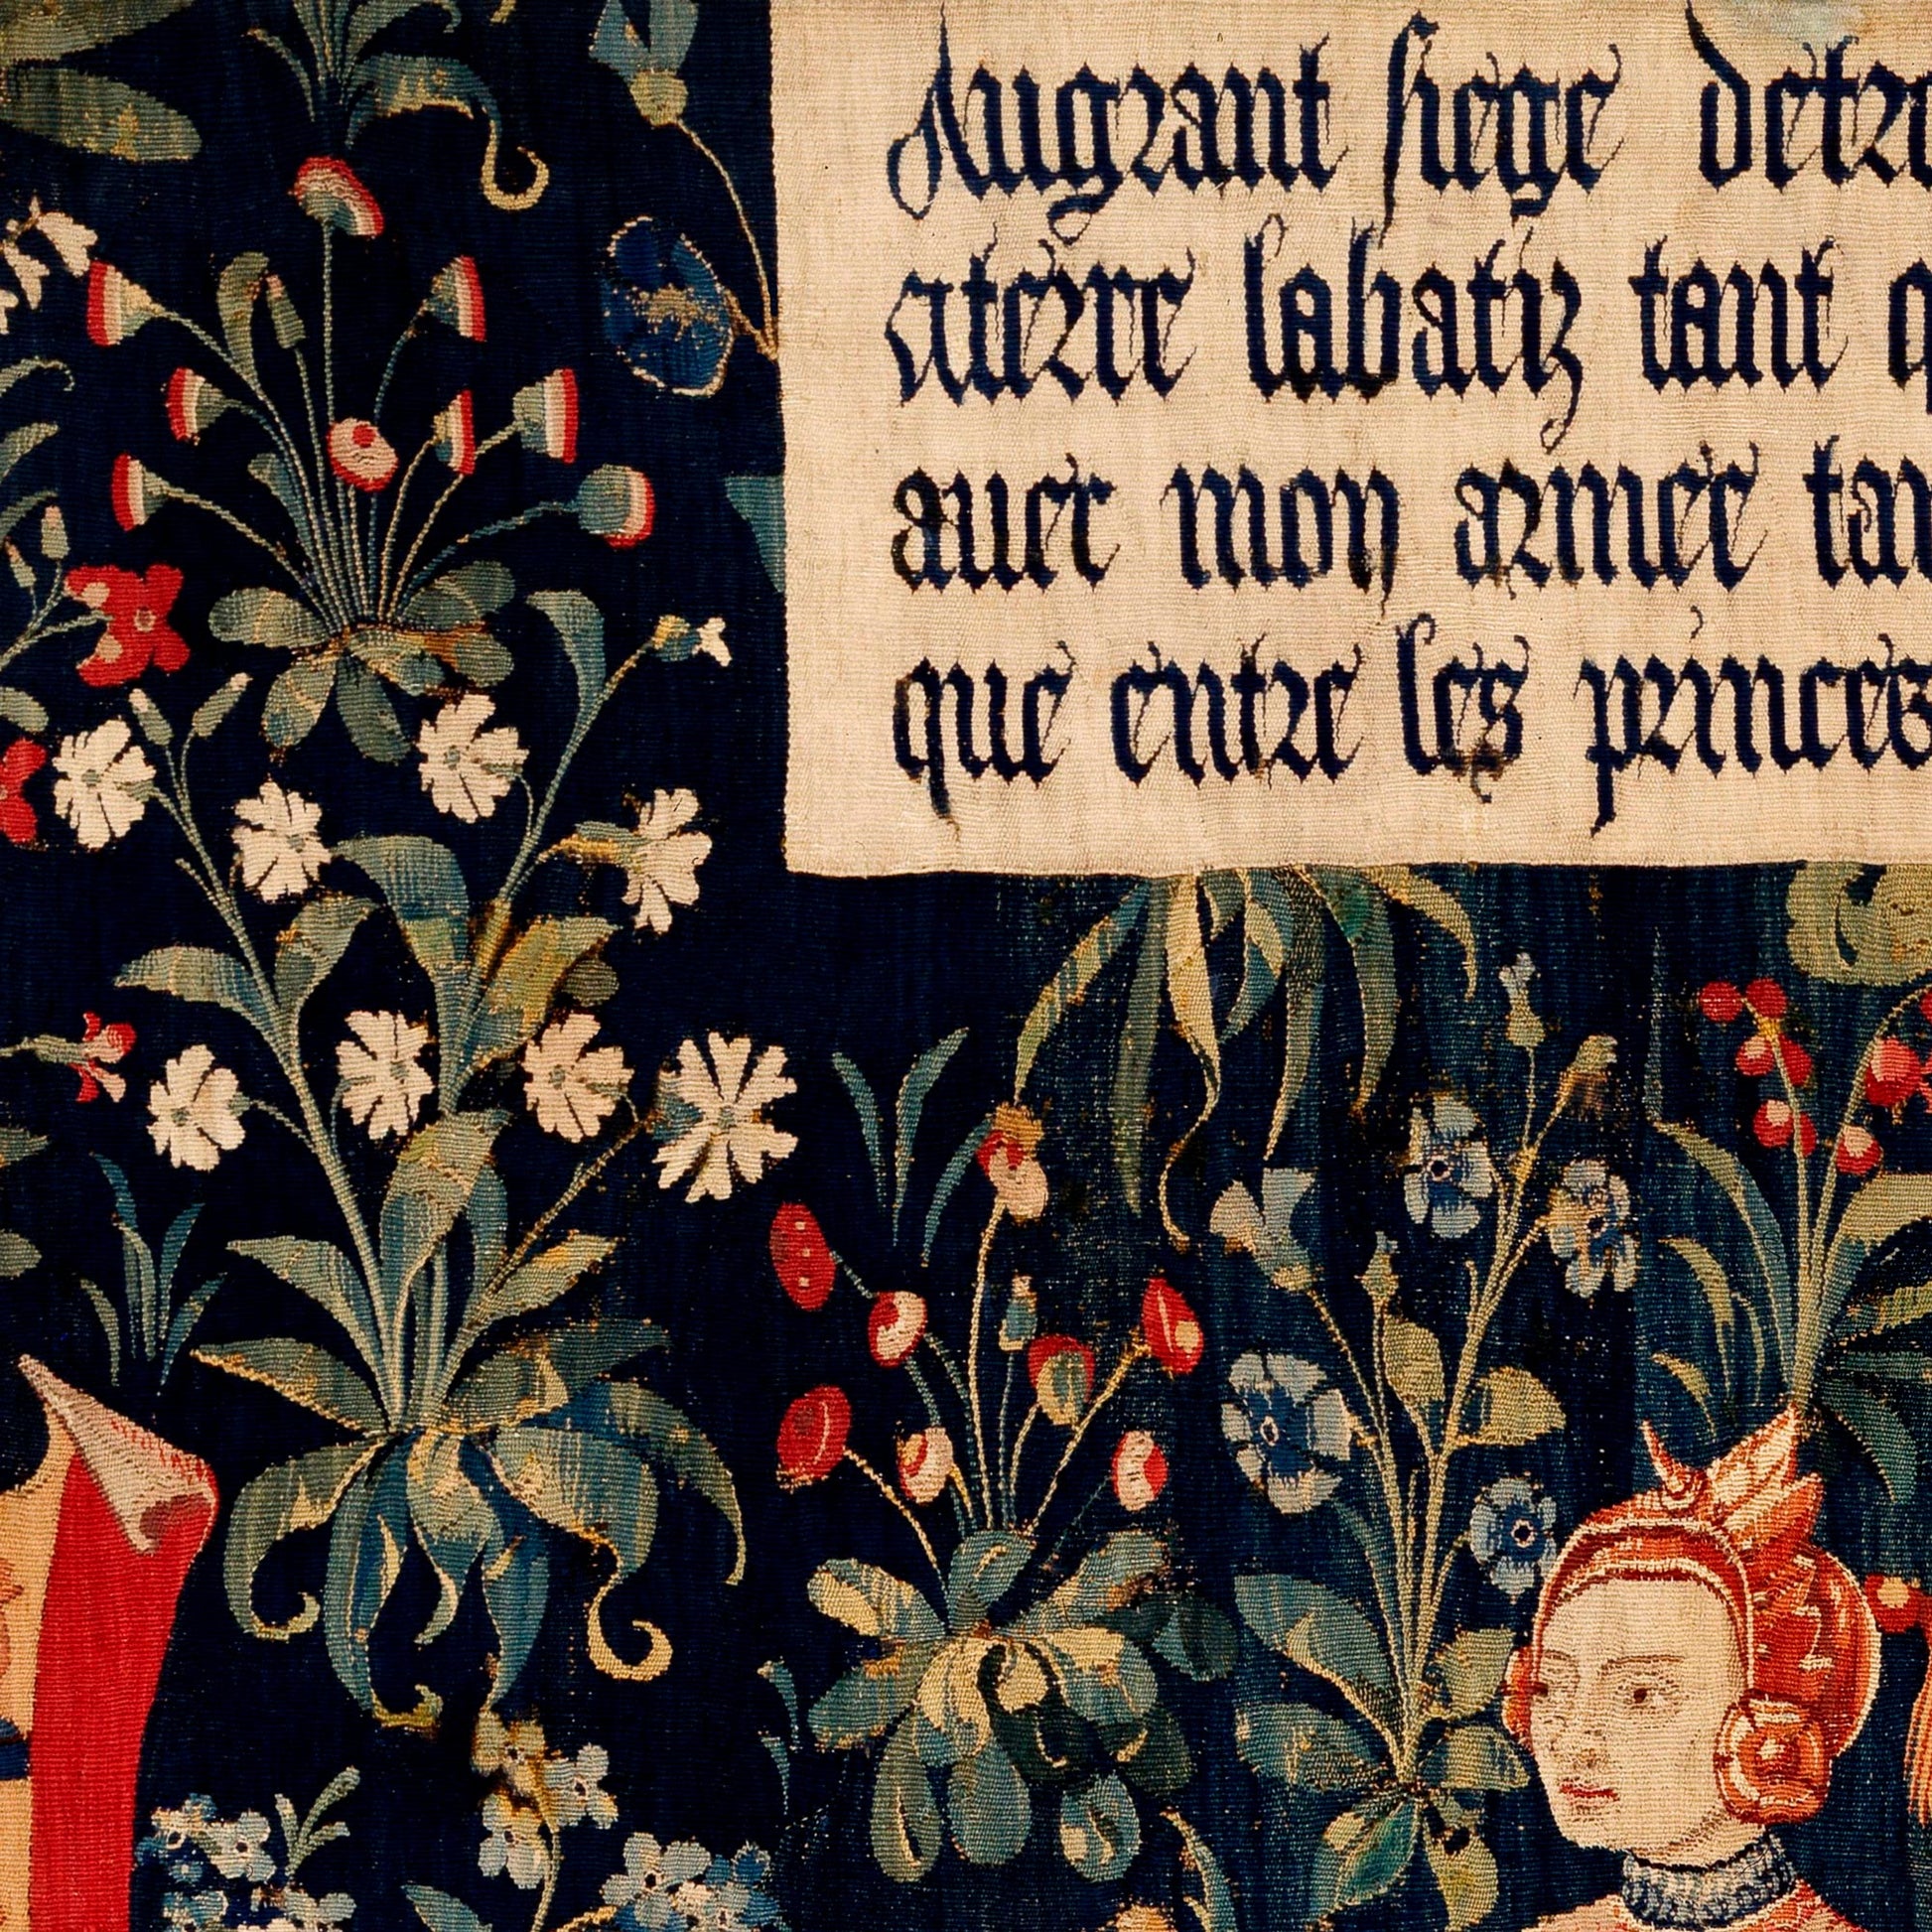 Augrant siege detro
aterre labatiz tant q
auec mon armee tan
que entre les princes